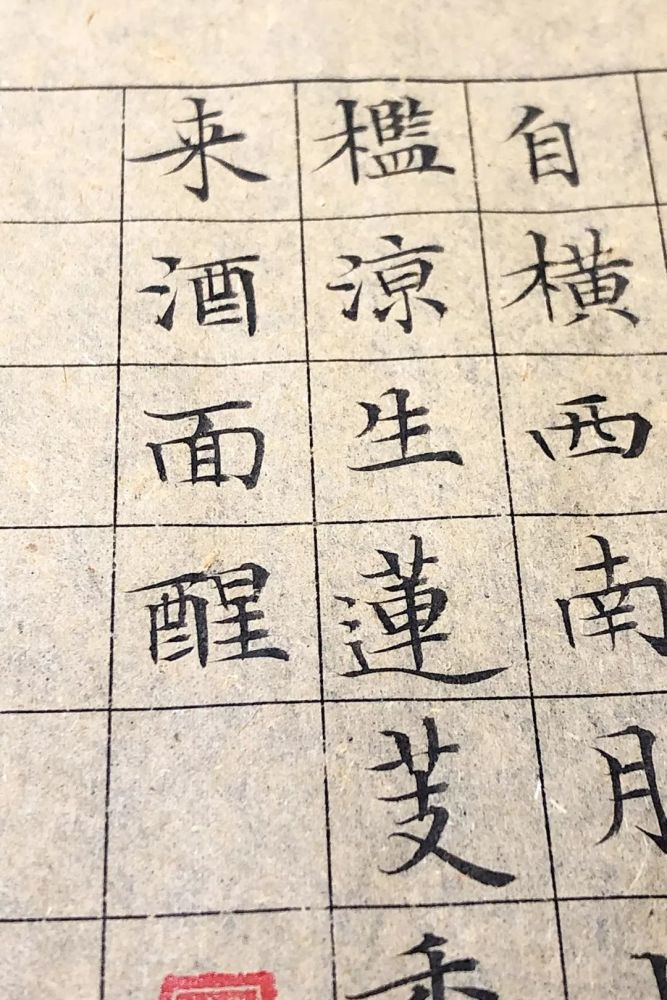 自横西南月
檻涼生蓮芰
来酒面醒